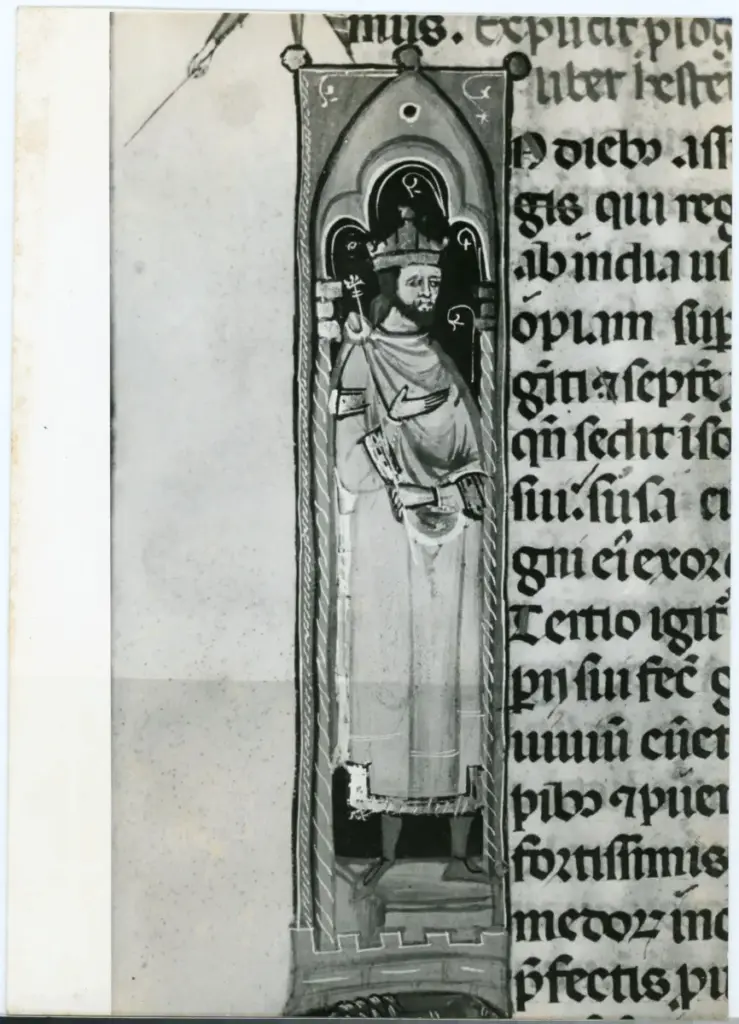 mus. Explicit plog
liber hester
N diebꝰ ass
gis qui reg
ab india us
opiam sup
gīti ⁊ septē
qn̄ sedit ī so
sui. susa ci
gni ei exor
Tertio igit᷑
pii sui fec̄ g
uiuiū cūct
pibꝰ ⁊ pūer
fortissimis
medoꝝ inc
p̄fectis pu